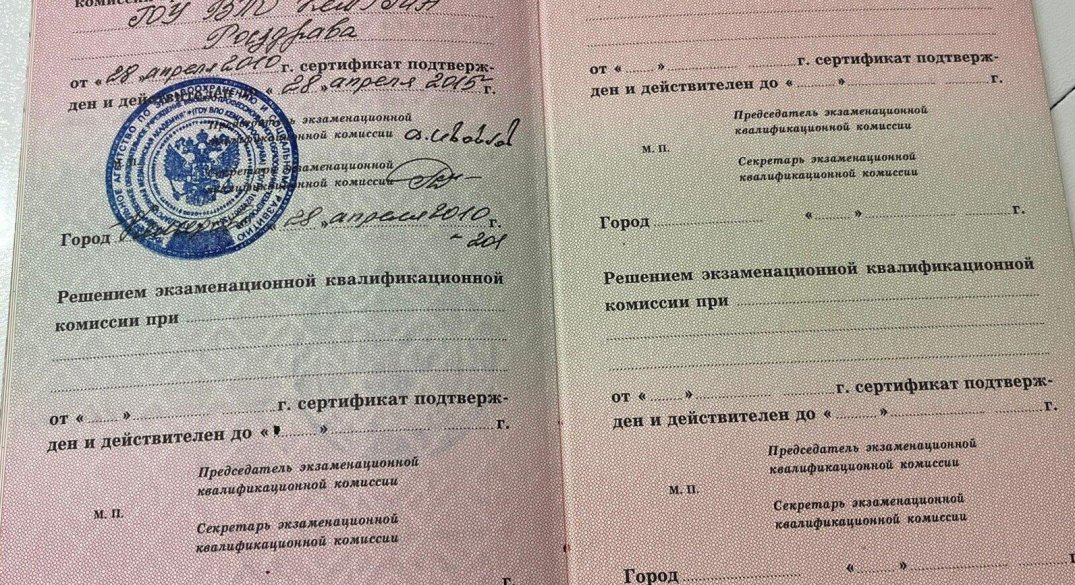 комиссии при ГОУ ВПО КемГМА
Росздрава
от « 28 » апреля 2010 г. сертификат подтверж-
ден и действителен до « 28 » апреля 2015 г.
Председатель экзаменационной
квалификационной комиссии
М. П.
Секретарь экзаменационной
квалификационной комиссии
Город « 28 » апреля 2010 г.
Решением экзаменационной квалификационной
комиссии при
от « » г. сертификат подтверж-
ден и действителен до « » г.
Председатель экзаменационной
квалификационной комиссии
М. П.
Секретарь экзаменационной
квалификационной комиссии
г.
от « » г. сертификат подтверж-
ден и действителен до « » г.
Председатель экзаменационной
квалификационной комиссии
М. П.
Секретарь экзаменационной
квалификационной комиссии
Город « » г.
Решением экзаменационной квалификационной
комиссии при
от « » г. сертификат подтверж-
ден и действителен до « » г.
Председатель экзаменационной
квалификационной комиссии
М. П.
Секретарь экзаменационной
квалификационной комиссии
Город « » г.